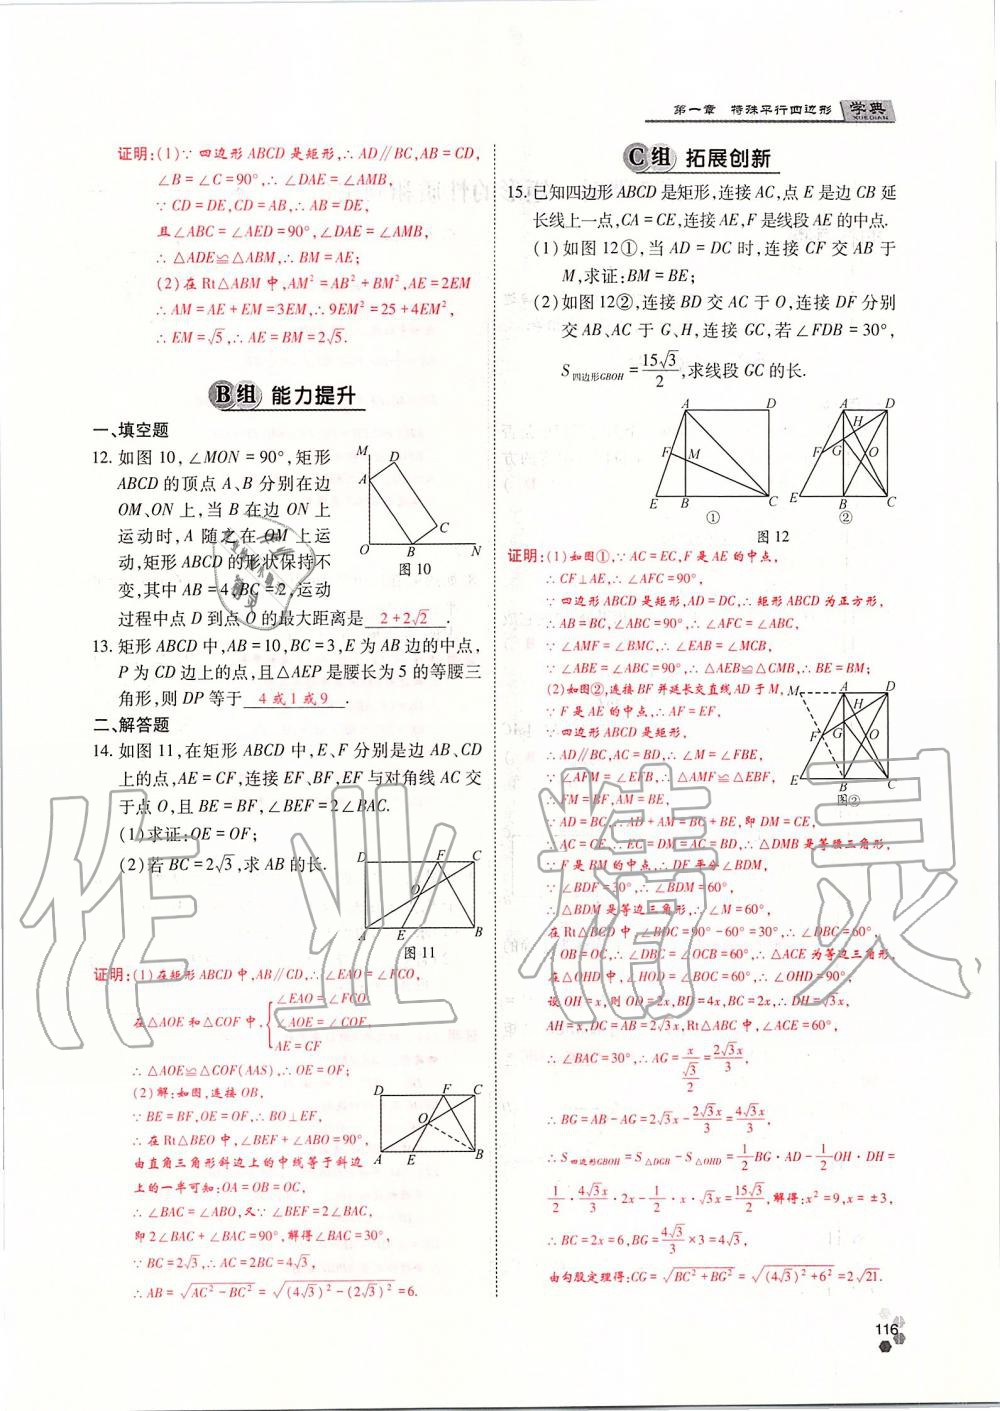 第一章 特殊平行四边形 学典
XUEDIAN
证明:(1)∵四边形ABCD是矩形,∴AD∥BC,AB=CD,
∠B=∠C=90°,∴∠DAE=∠AMB,
∵CD=DE,CD=AB,∴AB=DE,
且∠ABC=∠AED=90°,∠DAE=∠AMB,
∴△ADE≌△ABM,∴BM=AE;
(2)在Rt△ABM中,AM²=AB²+BM²,AE=2EM
∴AM=AE+EM=3EM,∴9EM²=25+4EM²,
∴EM=√5,∴AE=BM=2√5.
B组 能力提升
一、填空题
12.如图10,∠MON=90°,矩形
ABCD的顶点A、B分别在边
OM、ON上,当B在边ON上
运动时,A随之在OM上运
动,矩形ABCD的形状保持不
变,其中AB=4,BC=2,运动
过程中点D到点O的最大距离是 2+2√2 .
M D A C O B N
图10
13.矩形ABCD中,AB=10,BC=3,E为AB边的中点,
P为CD边上的点,且△AEP是腰长为5的等腰三
角形,则DP等于 4或1或9 .
二、解答题
14.如图11,在矩形ABCD中,E、F分别是边AB、CD
上的点,AE=CF,连接EF、BF,EF与对角线AC交
于点O,且BE=BF,∠BEF=2∠BAC.
(1)求证:OE=OF;
(2)若BC=2√3,求AB的长.
D F C O A E B
图11
证明:(1)在矩形ABCD中,AB∥CD,∴∠EAO=∠FCO,
在△AOE和△COF中,{∠EAO=∠FCO
∠AOE=∠COF,
AE=CF
∴△AOE≌△COF(AAS),∴OE=OF;
(2)解:如图,连接OB,
∵BE=BF,OE=OF,∴BO⊥EF,
∴在Rt△BEO中,∠BEF+∠ABO=90°,
由直角三角形斜边上的中线等于斜边
上的一半可知:OA=OB=OC,
∴∠BAC=∠ABO,又∵∠BEF=2∠BAC,
即2∠BAC+∠BAC=90°,解得∠BAC=30°,
∵BC=2√3,∴AC=2BC=4√3,
∴AB=√(AC²-BC²)=√((4√3)²-(2√3)²)=6.
D F C O A E B
C组 拓展创新
15.已知四边形ABCD是矩形,连接AC,点E是边CB延
长线上一点,CA=CE,连接AE,F是线段AE的中点.
(1)如图12①,当AD=DC时,连接CF交AB于
M,求证:BM=BE;
(2)如图12②,连接BD交AC于O,连接DF分别
交AB、AC于G、H,连接GC,若∠FDB=30°,
S四边形GBOH=15√3/2,求线段GC的长.
A D F M E B C ①
A D H F G O E B C ②
图12
证明:(1)如图①,∵AC=EC,F是AE的中点,
∴CF⊥AE,∴∠AFC=90°,
∵四边形ABCD是矩形,AD=DC,∴矩形ABCD为正方形,
∴AB=BC,∠ABC=90°,∴∠AFC=∠ABC,
∵∠AMF=∠BMC,∴∠EAB=∠MCB,
∵∠ABE=∠ABC=90°,∴△AEB≌△CMB,∴BE=BM;
(2)如图②,连接BF并延长交直线AD于M,
∵F是AE的中点,∴AF=EF,
∵四边形ABCD是矩形,
∴AD∥BC,AC=BD,∴∠M=∠FBE,
∵∠AFM=∠EFB,∴△AMF≌△EBF,
∴FM=BF,AM=BE,
∵AD=BC,∴AD+AM=BC+BE,即DM=CE,
∵AC=CE,∴DM=BD,∴△DMB是等腰三角形,
∵F是BM的中点,∴DF平分∠BDM,
∵∠BDF=30°,∴∠BDM=60°,
∴△BDM是等边三角形,∴∠M=60°,
在Rt△BCD中,∠BDC=90°-60°=30°,∴∠DBC=60°,
∵OB=OC,∴∠DBC=∠OCB=60°,∴△OBC为等边三角形,
在△OHD中,∠HOD=∠BOC=60°,∴∠OHD=90°,
设OH=x,则OD=2x,BD=4x,BC=2x,∴DH=√3x,
AH=x,DC=AB=2√3x,Rt△ABC中,∠ACE=60°,
∴∠BAC=30°,∴AG=x/(√3/2)=2√3x/3,
∴BG=AB-AG=2√3x-2√3x/3=4√3x/3,
∴S四边形GBOH=S△DGB-S△OHD=1/2BG·AD-1/2OH·DH=
1/2·4√3x/3·2x-1/2·x·√3x=15√3/2,解得:x²=9,x=±3,
∴BC=2x=6,BG=4√3/3×3=4√3,
由勾股定理得:CG=√(BC²+BG²)=√((4√3)²+6²)=2√21.
M A D H F G O E B C
图②
116
作业精灵